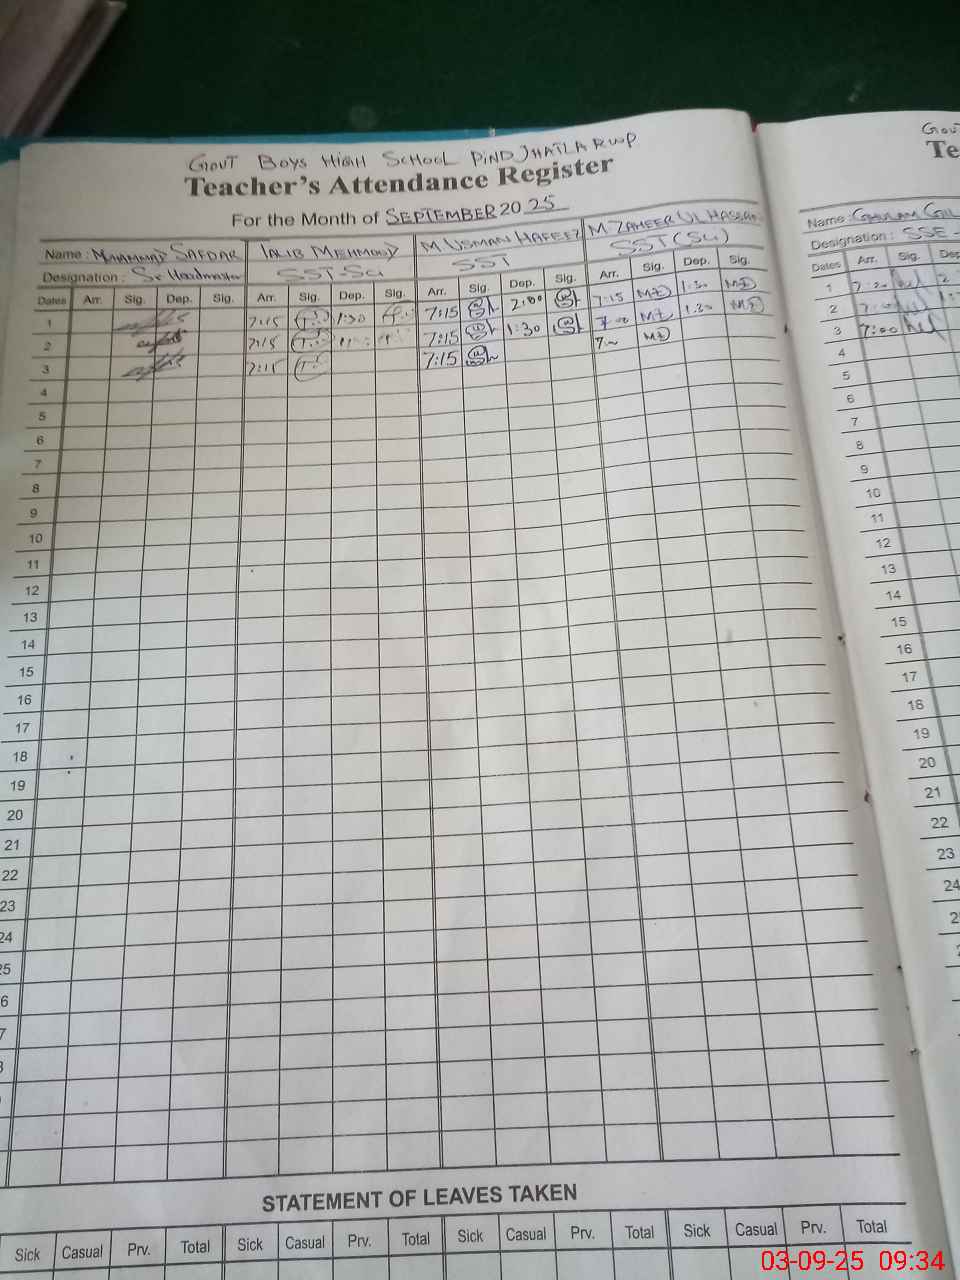 GOVT BOYS HIGH SCHOOL PIND JHATLA RWP
Teacher's Attendance Register
For the Month of SEPTEMBER 2025
Name : MUHAMMAD SAFDAR TALIB MEHMOOD M USMAN HAFEEZ M. ZAHEER UL HASSAN
Designation : Sr Headmaster SST-Sci SST SST (Sci)
Dates Arr. Sig. Dep. Sig. Arr. Sig. Dep. Sig. Arr. Sig. Dep. Sig. Arr. Sig. Dep. Sig.
1 7:15 1:30 7:15 2:00 7:15 1:30
2 7:15 7:15 1:30 7:00 1:30
3 7:15 7:15
4
5
6
7
8
9
10
11
12
13
14
15
16
17
18
19
20
21
22
23
24
25
6
7
STATEMENT OF LEAVES TAKEN
Sick Casual Prv. Total Sick Casual Prv. Total Sick Casual Prv. Total Sick Casual Prv. Total
GOVT
Te
Name : GHULAM
Designation : SSE -
Dates Arr. Sig. Dep
1 7:20
2
3 7:00
4
5
6
7
8
9
10
11
12
13
14
15
16
17
18
19
20
21
22
23
24
03-09-25 09:34